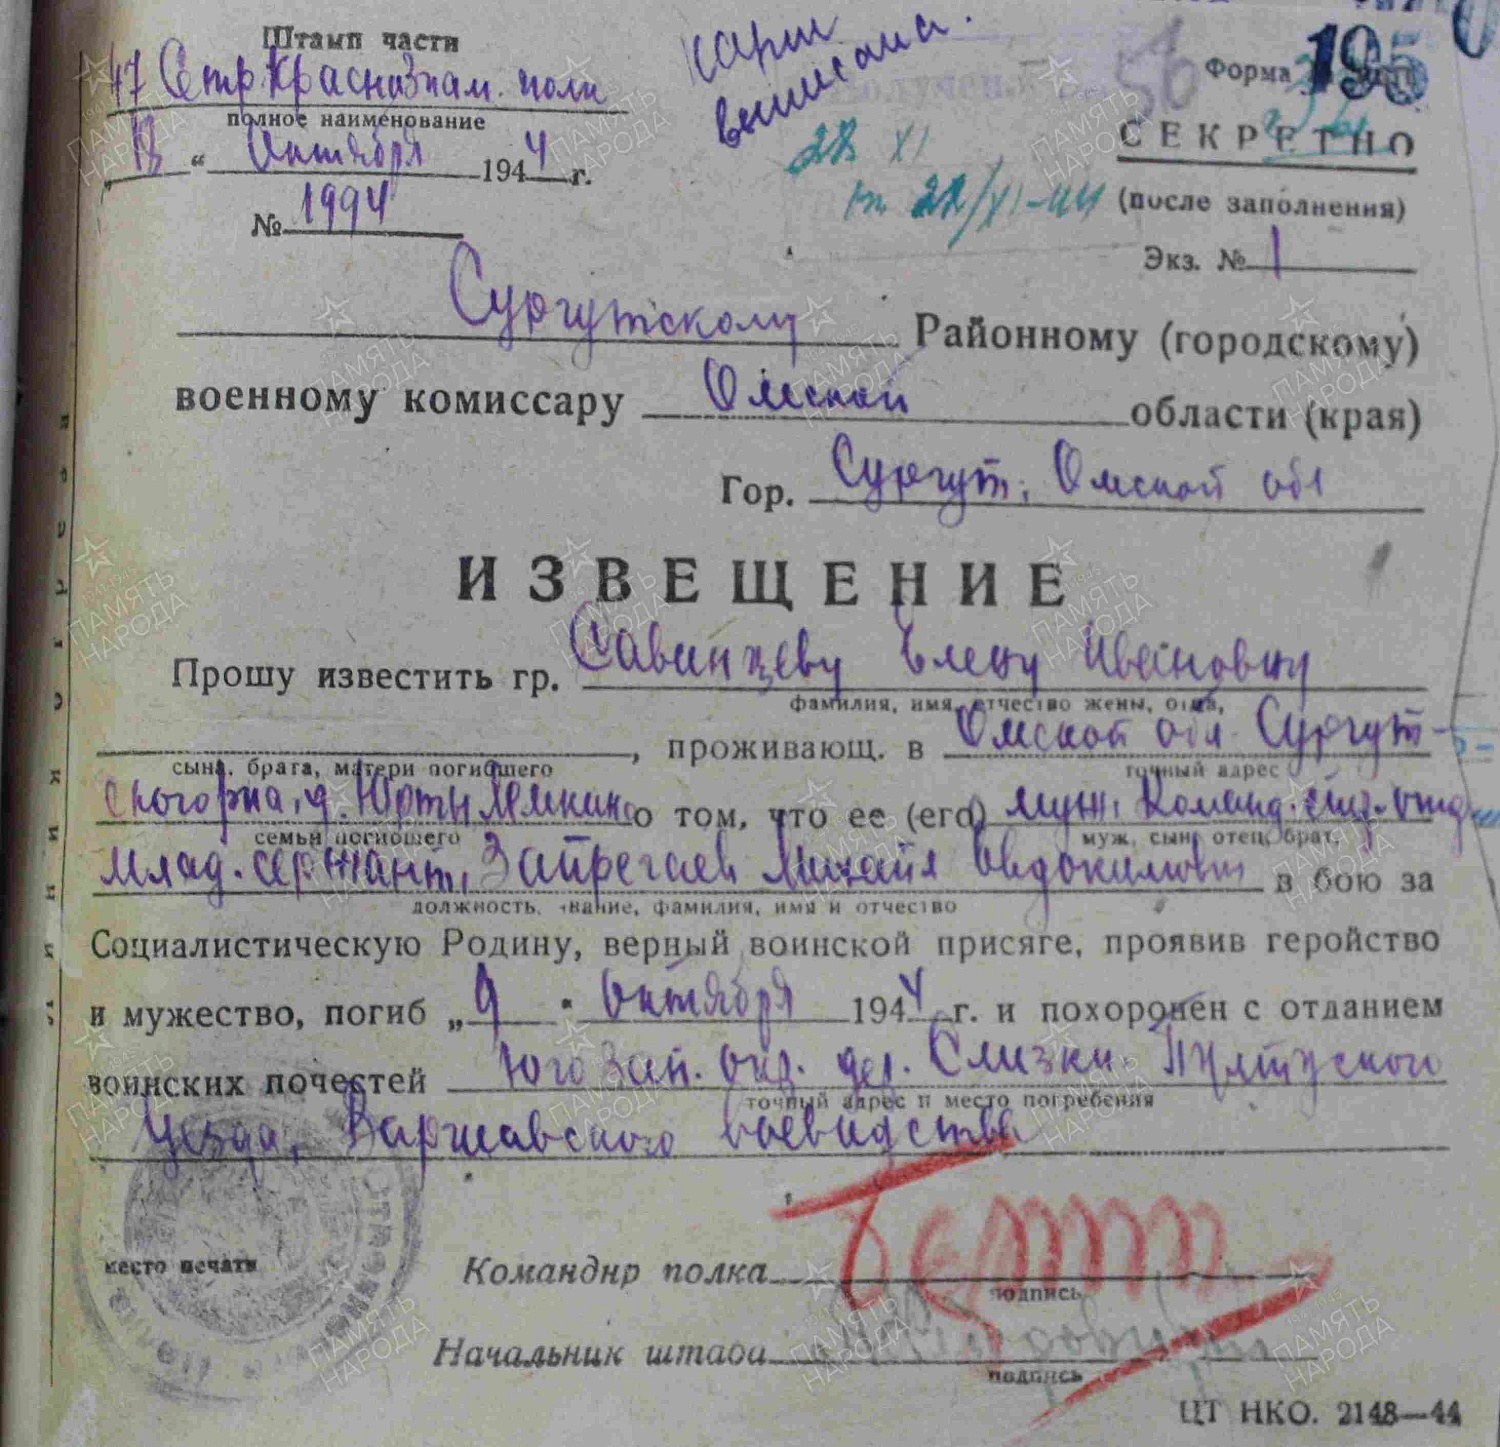 Штамп части
47 Стр. Краснознам. полк
полное наименование
13 " Октября 1944 г.
№ 1994
карт
выписана.
28 XI
вт 22/XI-44
56
Форма
195
СЕКРЕТНО
(после заполнения)
Экз. № 1
Сургутскому Районному (городскому)
военному комиссару Омской области (края)
Гор. Сургут, Омской обл
ИЗВЕЩЕНИЕ
Прошу известить гр. Савинцеву Елену Ивановну
фамилия, имя, отчество жены, отца,
, проживающ. в Омской обл. Сургут-
сына, брата, матери погибшего точный адрес
ского р-на, д. Юрты о том, что ее (его) муж, Команд.
семьи погибшего муж, сын, отец, брат,
млад. сержант, Запрегаев Михаил Овдокимович в бою за
должность, звание, фамилия, имя и отчество
Социалистическую Родину, верный воинской присяге, проявив геройство
и мужество, погиб „9 " Октября 1944 г. и похоронен с отданием
воинских почестей Юго Зап. окр. дер. Слизки Пултуского
точный адрес и место погребения
уезда, Варшавского воеводства
место печати
Командир полка
подпись
Начальник штаба
подпись
ЦТ НКО. 2148—44
ПАМЯТЬ НАРОДА